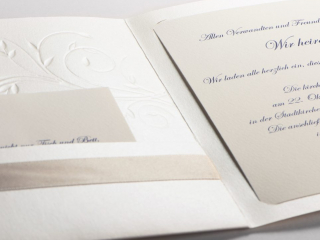 Allen Verwandten und Freund
Wir heir
Wir laden alle herzlich ein, dies
Die kirch
am 22. Ok
in der Stadtkirche
Die anschließ
von Tisch und Bett.